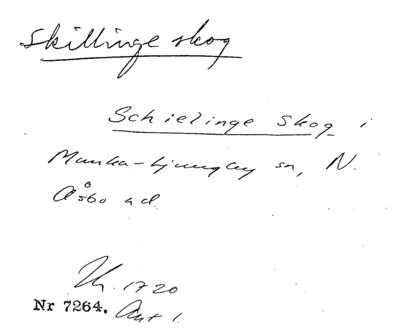 Skillinge skog
Schielinge Skog i
Munka-Ljungby sn, N.
Åsbo hd.
1720
Nr 7264. Akt 1.